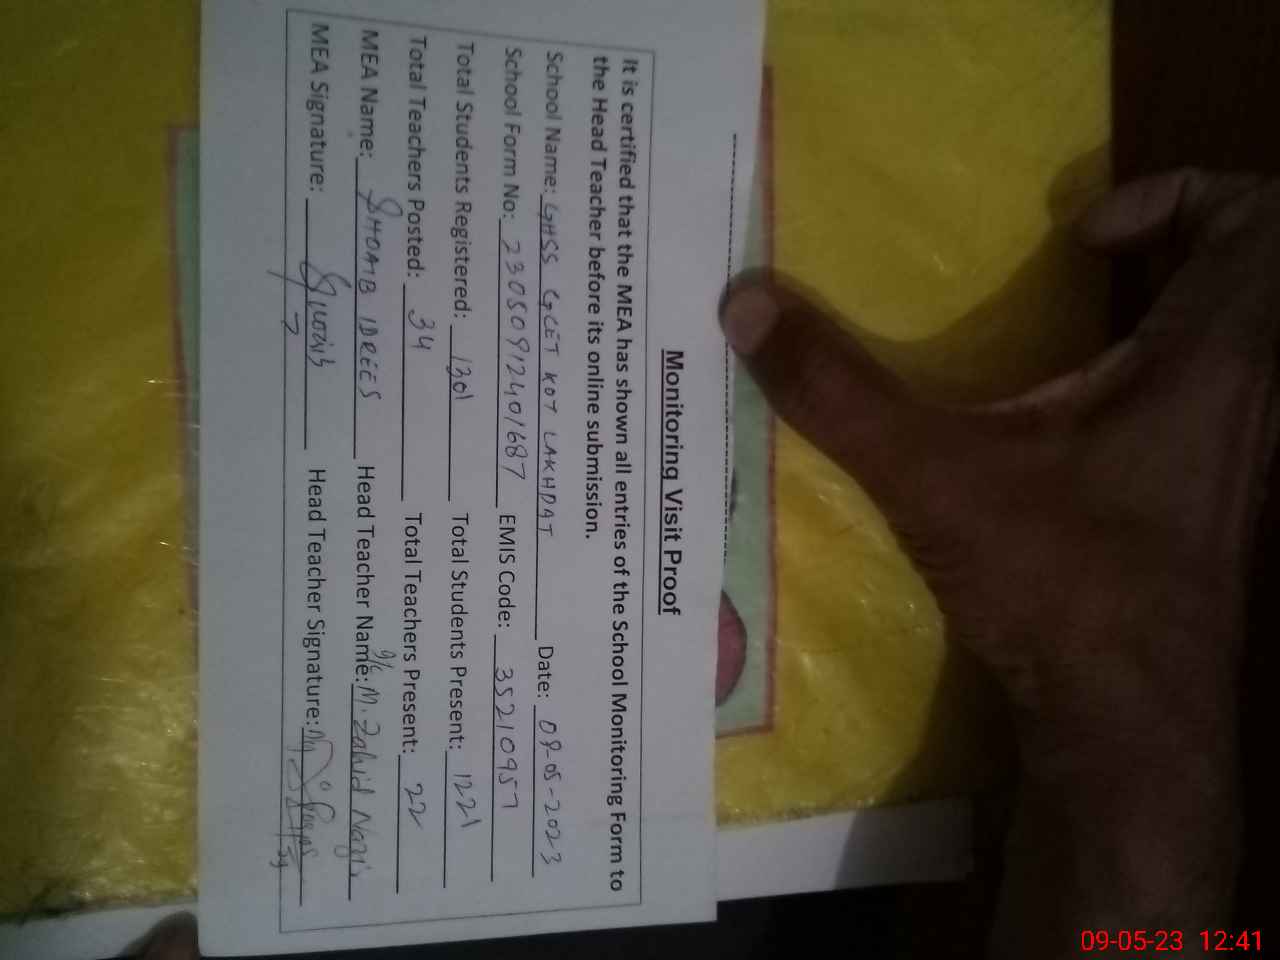 Monitoring Visit Proof
It is certified that the MEA has shown all entries of the School Monitoring Form to
the Head Teacher before its online submission.
School Name: GHSS GCET KOT LAKHPAT Date: 09-05-2023
School Form No: 23050912401687 EMIS Code: 35210957
Total Students Registered: 1301 Total Students Present: 1221
Total Teachers Posted: 34 Total Teachers Present: 22
MEA Name: SHOAIB IDREES Head Teacher Name: M. Zahid Nazir
MEA Signature: Shoaib Head Teacher Signature:
09-05-23 12:41